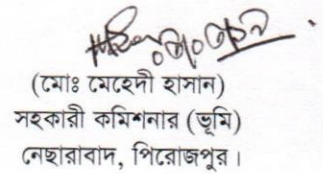 (মোঃ মেহেদী হাসান)
সহকারী কমিশনার (ভূমি)
নেছারাবাদ, পিরোজপুর।